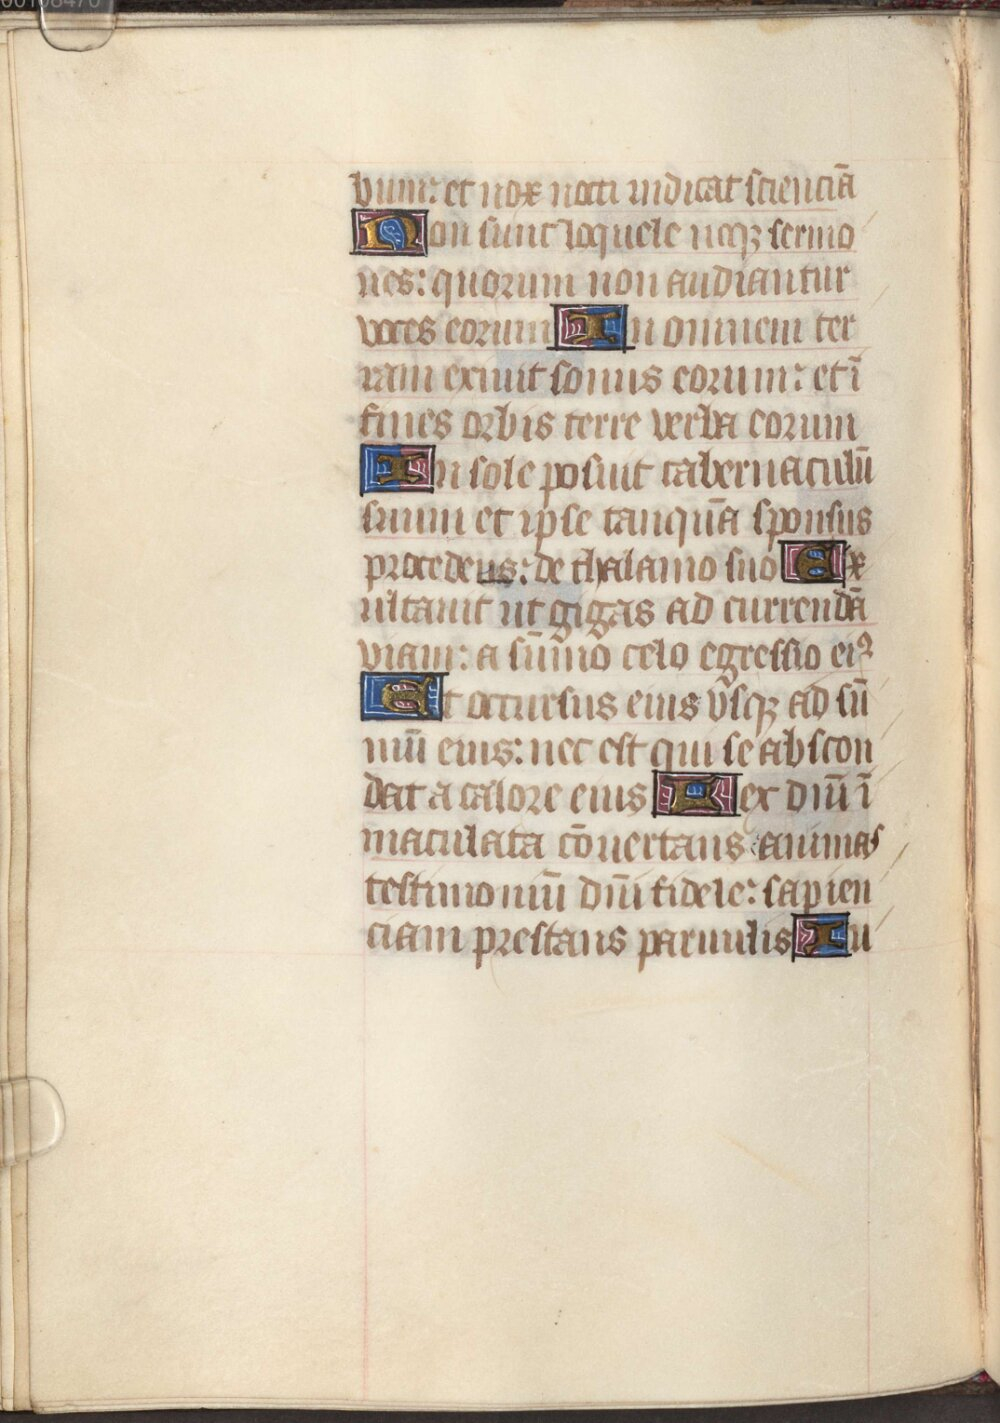 bum: et nox nocti indicat scienciā
Non sunt loquele neqꝫ sermo
nes: quorum non audiantur
voces eorum In omnem ter
ram exiuit sonus eorum: et ī
fines orbis terre verba eorum
In sole posuit tabernaculū
suum et ipse tanquā sponsus
procedens: de thalamo suo Ex
ultauit ut gigas ad currendā
viam: a sūmo celo egressio eiꝰ
Et occursus eius vsqꝫ ad sū
mū eius: nec est qui se abscon
dat a calore eius Lex dn̄i ī
maculata cōuertans animas
testimoniū dn̄i fidele: sapien
ciam prestans paruulis Iu